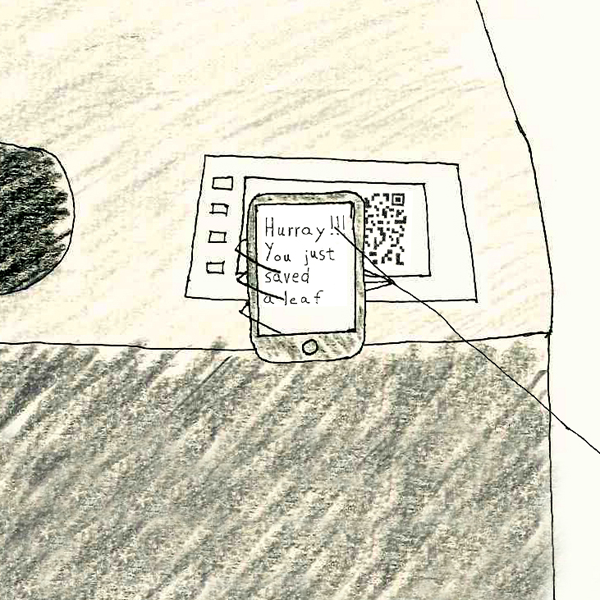 Hurray!!!
You just
saved
a leaf